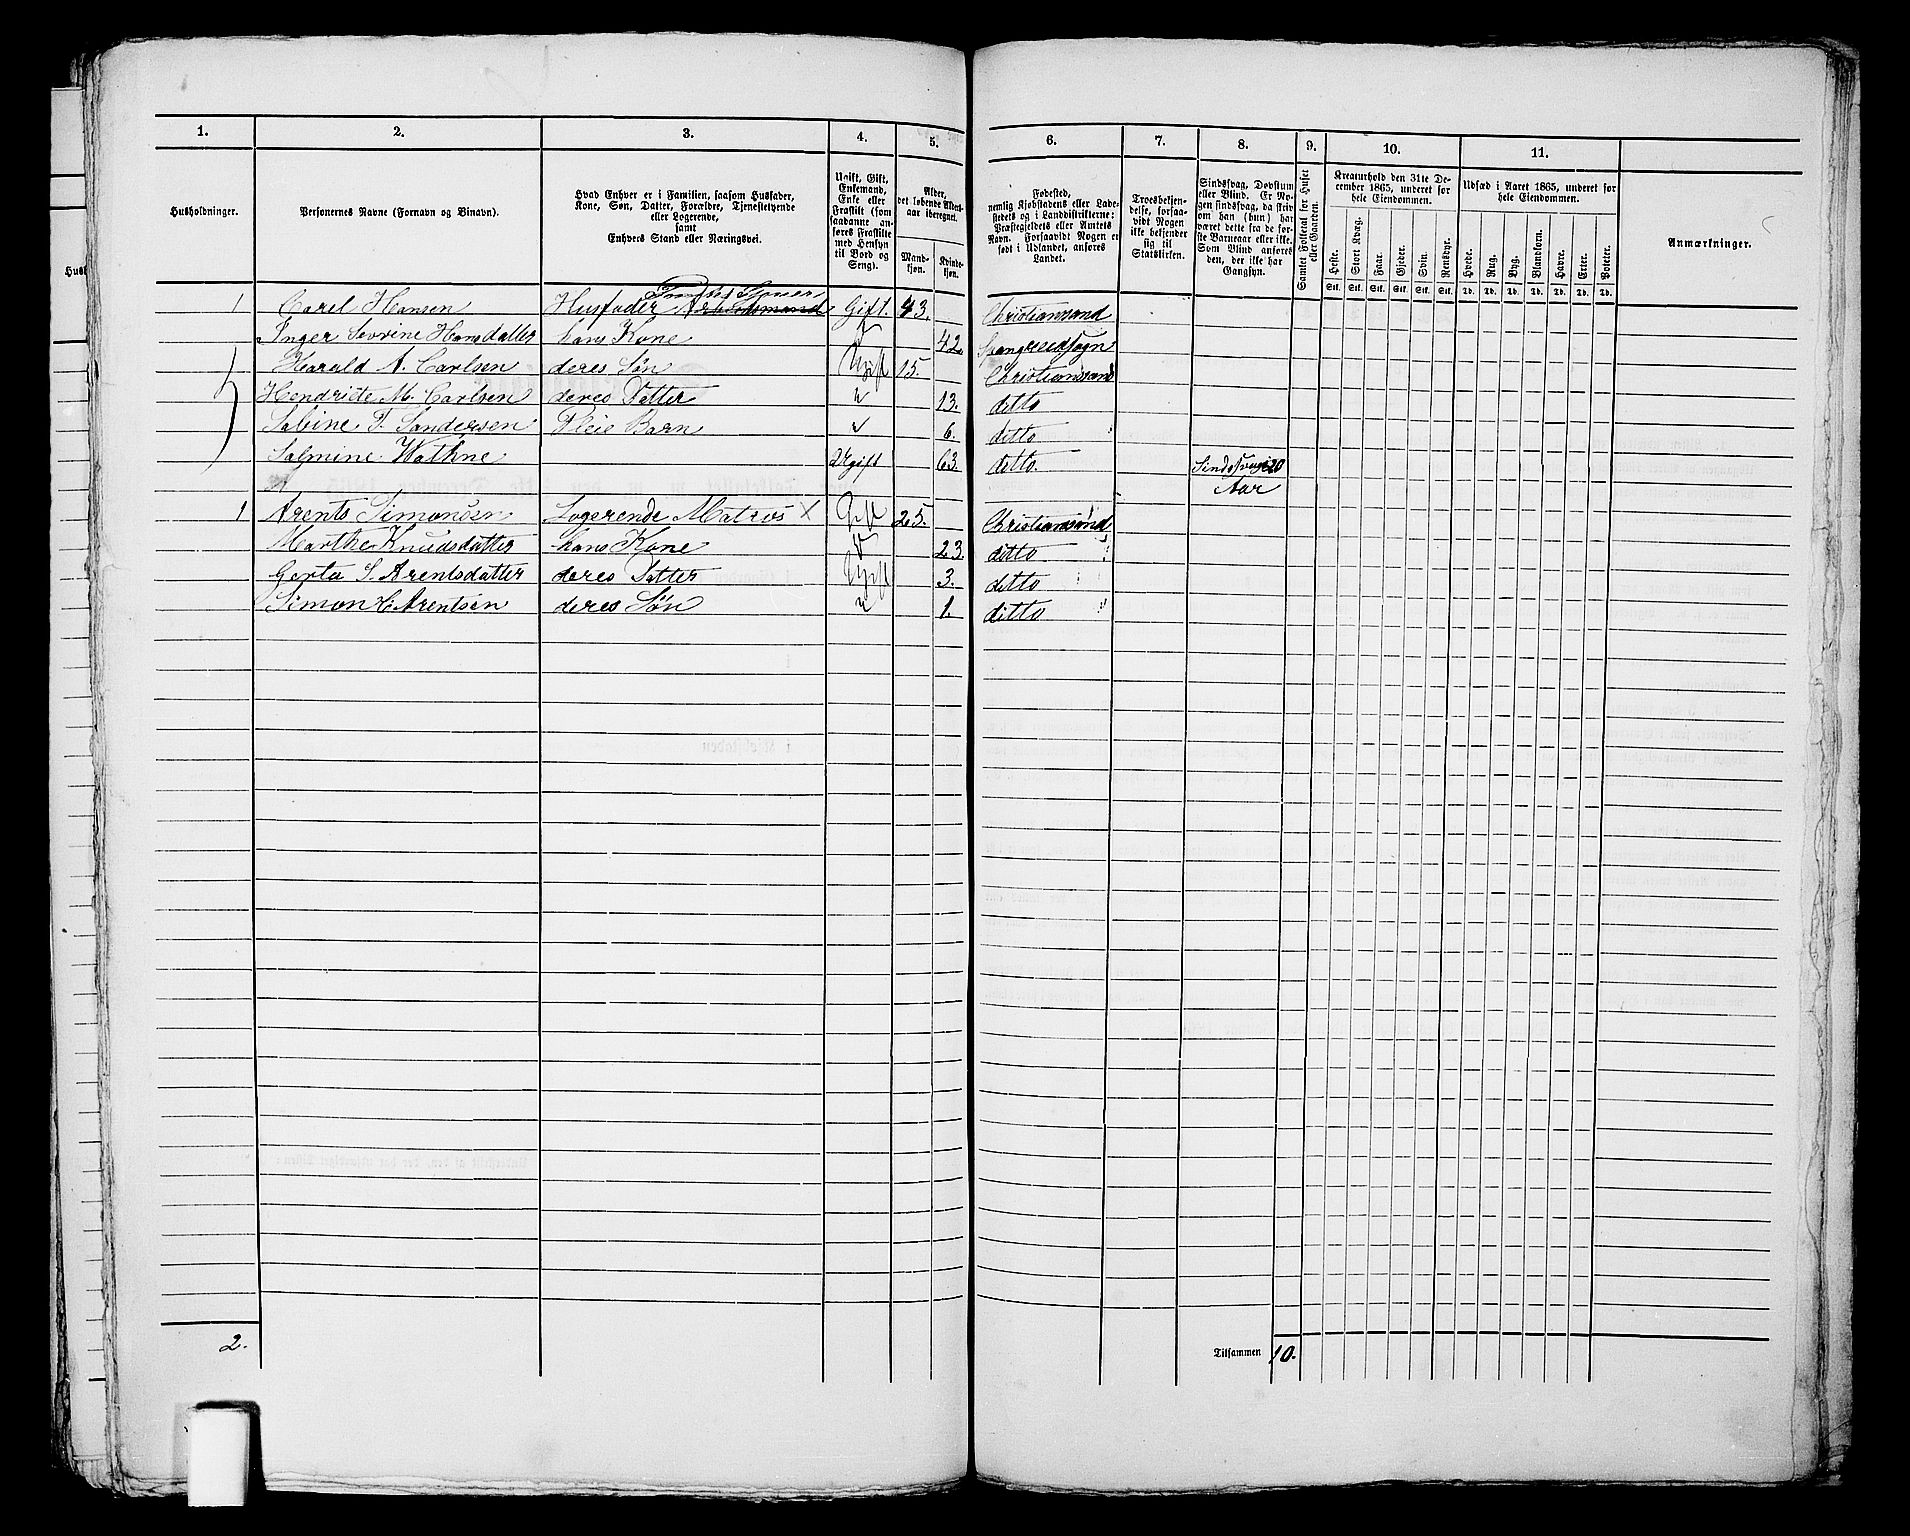 1. 2. 3. 4. 5. 6. 7. 8. 9. 10. 11.
Husholdninger.
Personernes Navne (Fornavn og Binavn).
Hvad Enhver er i Familien, saasom Husfader,
Kone, Søn, Datter, Forældre, Tjenestetyende
eller Logerende,
samt
Enhvers Stand eller Næringsvei.
Ugift, Gift,
Enkemand,
Enke eller
Fraskilt (som
saadanne an-
føres Fraskilte
med Hensyn
til Bord og
Seng).
Alder,
det løbende Alders-
aar iberegnet.
Mand-
kjøn.
Kvinde-
kjøn.
Fødested,
nemlig Kjøbstadens eller Lade-
stedets og i Landdistrikterne:
Præstegjeldets eller Amtets
Navn. Forsaavidt Nogen er
født i Udlandet, anføres
Landet.
Troesbekjen-
delse, forsaa-
vidt Nogen
ikke bekjender
sig til
Statskirken.
Sindssvag, Døvstum
eller Blind. Er No-
gen sindssvag, da skriv
om han (hun) har
været dette fra de før-
ste Barneaar eller ikke.
Som Blind anføres
den, der ikke har
Gangsyn.
Samlet Folketal for Huset
eller Gaarden.
Kreaturhold den 31te De-
cember 1865, underet for
hele Eiendommen.
Heste. Stort Kvæg. Faar. Gjeder. Svin. Rensdyr.
Stk. Stk. Stk. Stk. Stk. Stk.
Udsæd i Aaret 1865, underet for
hele Eiendommen.
Hvede. Rug. Byg. Blandkorn. Havre. Erter. Poteter.
Td. Td. Td. Td. Td. Td. Td.
Anmærkninger.
1 Carel Hansen Husfader Arbeidsmand Gift. 43. Christiansand
Inger Sevrine Hansdatter hans Kone 42.
Harald A. Carlsen deres Søn Ugift 15. Christiansand
Hendriete M. Carlsen deres Datter " 13. ditto
Sabine T. Sandersen Pleie Barn " 6. ditto
Salmine Wathne Ugift 63. ditto. Sindssvag i 20
Aar
1 Arents Simonsen Logerende Matros X Gift 25. Christiansand
Marthe Knudsdatter hans Kone 23. ditto "
Gerta S. Arentsdatter deres Datter Ugift 3. ditto
Simon H. Arentsen deres Søn " 1. ditto "
2. Tilsammen 10.